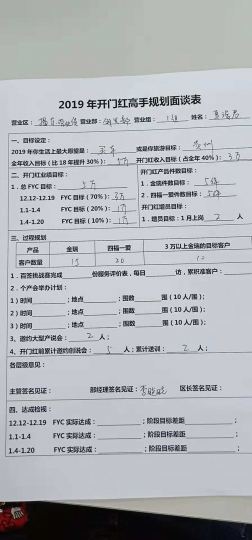 2019 年开门红高手规划面谈表
营业区： 营业部： 营业组： 姓名：
一、目标设定：
2019 年你生活上最大愿望是： 买车 或是你旅游目标： 贵州
全年收入目标（比 18 年提升 30%）： 5万 开门红收入目标（占全年 40%）： 3万
二、开门红业绩目标： 开门红产品件数目标：
1．总 FYC 目标： 5万 1．金瑞件数目标： 5件
12.12-12.19 FYC 目标（70%）： 3万 2．四福一爱件数目标： 5件
1.1-1.4 FYC 目标（20%）： 1万 开门红增员目标：
1.4-1.20 FYC 目标（10%）： 1万 1．增员目标：1 月上岗 2 人
三、过程规划
产品 金瑞 四福一爱 3 万以上金瑞的目标客户
客户数量 15 20 10
1．百答挑战赛完成 份服务评价表，每日 访，累积准客户：
2．个产会举办计划：
1）时间 ；地点 ；围数 围（10 人/围）；
2）时间 ；地点 ；围数 围（10 人/围）；
3）时间 ；地点 ；围数 围（10 人/围）；
3、邀约大型产说会： 2 人；
4、开门红前累计邀约创说会： 5 人；累计送训： 2 人；
各层级意见：
主管签名见证： 部经理签名见证： 区长签名见证：
四、达成检视：
12.12-12.19 FYC 实际达成： ；阶段目标差距 ；
1.1-1.4 FYC 实际达成： ；阶段目标差距 ；
1.4-1.20 FYC 实际达成： ；阶段目标差距 ；